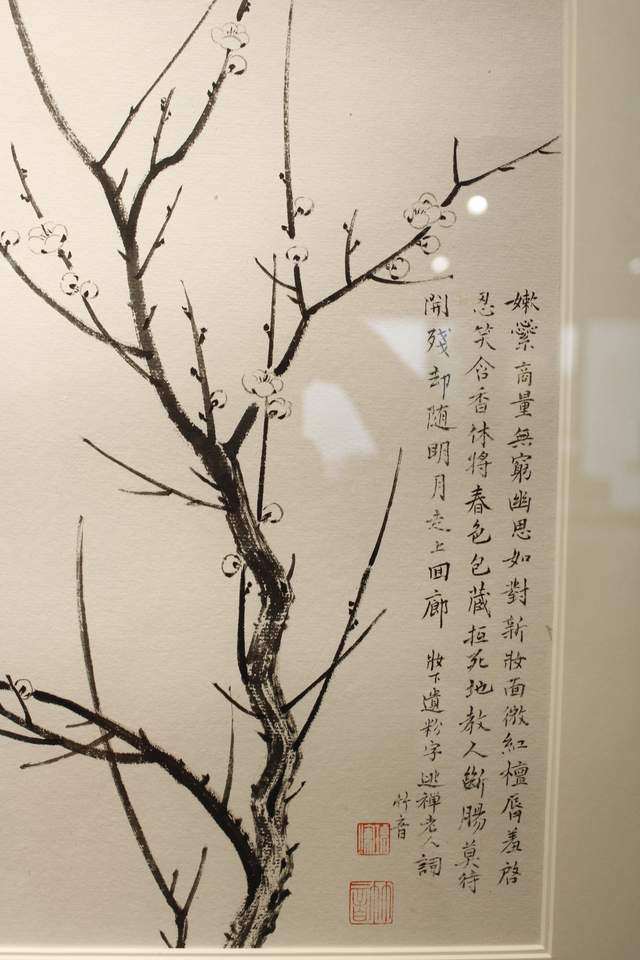 嫩蕊商量無窮幽思如對新妝面微紅檀脣羞啓
忍笑含香休將春色包藏抵死地教人斷腸莫待
開殘却随明月走上回廊 妝下遺粉字 逃禪老人詞
竹音
竹音